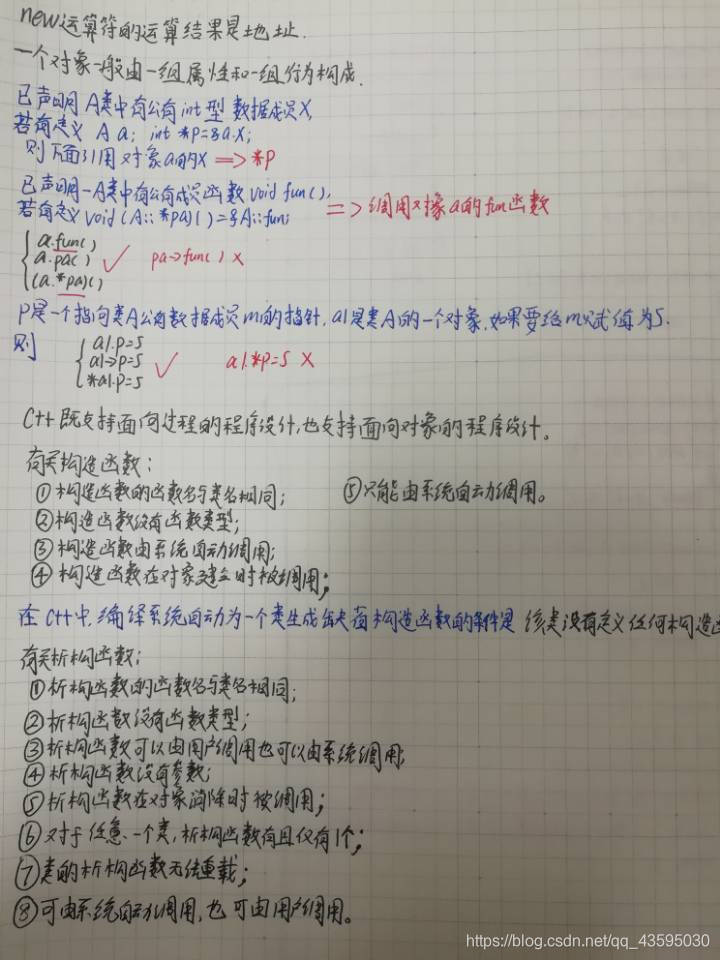 new运算符的运算结果是地址.
一个对象一般由一组属性和一组行为构成.
已声明A类中有公有int型数据成员X,
若有定义 A a; int *p=&a.X;
则下面引用对象a的X => *p
已声明一A类中有公有成员函数void fun(),
若有定义void(A::*pa)()=&A::fun; => 调用对象a的fun函数
a.fun()
a.pa() ✓ pa->fun() ×
(a.*pa)()
P是一个指向类A公有数据成员m的指针, a1是类A的一个对象.如果要给m赋值为5.
则 a1.p=5
a1->p=5 ✓ a1.*p=5 ×
*a1.p=5
C++既支持面向过程的程序设计,也支持面向对象的程序设计。
有关构造函数:
①构造函数的函数名与类名相同; ⑤只能由系统自动调用。
②构造函数没有函数类型;
③构造函数由系统自动调用;
④构造函数在对象建立时被调用;
在C++中,编译系统自动为一个类生成缺省构造函数的条件是 该类没有定义任何构造函
有关析构函数:
①析构函数的函数名与类名相同;
②析构函数没有函数类型;
③析构函数可以由用户调用也可以由系统调用;
④析构函数没有参数;
⑤析构函数在对象消除时被调用;
⑥对于任意一个类,析构函数有且仅有1个;
⑦类的析构函数无法重载;
⑧可由系统自动调用,也可由用户调用。
https://blog.csdn.net/qq_43595030